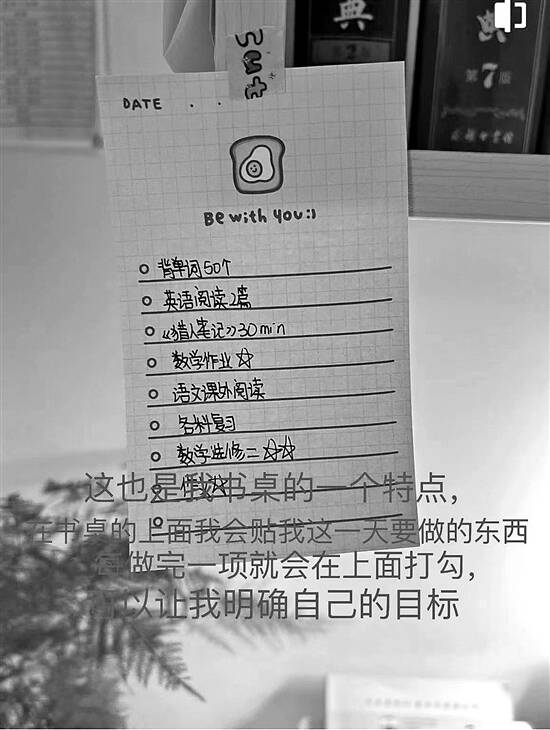 典
典
第7版
DATE . .
Be with you:)
背单词50个
英语阅读2篇
《猎人笔记》30min
数学作业☆
语文课外阅读
各科复习
数学选修二☆☆
这也是我书桌的一个特点，
在书桌的上面我会贴我这一天要做的东西
做完一项就会在上面打勾，
以让我明确自己的目标